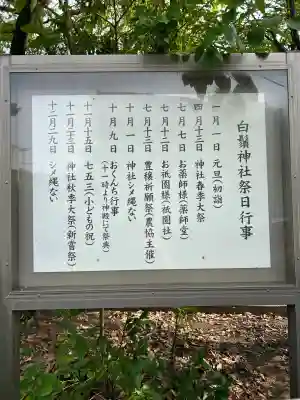 白鬚神社祭日行事
一月一日　元旦（初詣）
四月十三日　神社春季大祭
七月七日　お薬師様（薬師堂）
七月十二日　お祇園様（祇園社）
七月十三日　豊穣祈願祭（農協主催）
十月一日　神社シメ縄ない
十月九日　おくんち行事
（十一時より神殿にて祭典）
十一月十五日　七五三（小どもの祝）
十一月二十三日　神社秋季大祭（新嘗祭）
十二月二九日　シメ縄ない